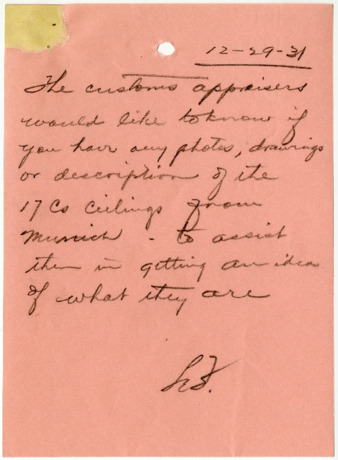 12-29-31
The customs appraisers
would like to know if
you have any photos, drawings
or description of the
17 Cs Ceilings from
Munich - to assist
them in getting an idea
of what they are